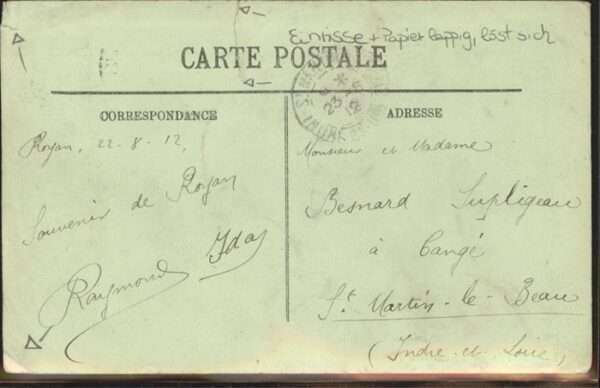 Einrisse + Papier lappig, löst sich
CARTE POSTALE
CORRESPONDANCE
Royan, 22-8-12,
Souvenir de Royan
Ida
Raymond
ADRESSE
Monsieur et Madame
Besnard Supligeau
à Cangé
St Martin-le-Beau
(Indre-et-Loire)
23
12
INDRE